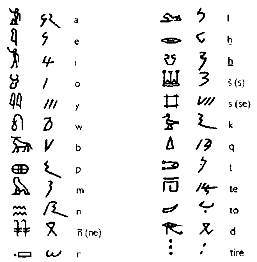 𐦀 𐦠 a 𐦐 𐦬 l
𐦁 𐦡 e 𐦑 𐦭 ḫ
𐦂 𐦢 i 𐦒 𐦮 ẖ
𐦃 𐦣 o 𐦓 𐦯 š (s)
𐦄 𐦤 y 𐦕 𐦱 s (se)
𐦅 𐦥 w 𐦖 𐦲 k
𐦆 𐦦 b 𐦗 𐦳 q
𐦈 𐦧 p 𐦘 𐦴 t
𐦉 𐦨 m 𐦚 𐦵 te
𐦊 𐦩 n 𐦜 𐦶 to
𐦌 𐦪 ñ (ne) 𐦝 𐦷 d
𐦎 𐦫 r ⁝ : tiré